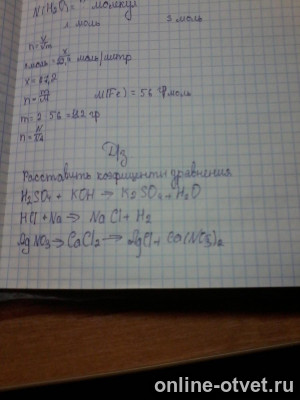 N(H2O) = молкул
1 моль 3 моль
n = V/Vm
моль = x/22,4 моль/литр
x = 67,2
n = m/M M(Fe) = 56 г/моль
m = 2 · 56 = 112 гр
n = N/NA
Дз
Расставить коэфиценты уравнения
H2SO4 + KOH → K2SO4 + H2O
HCl + Na → NaCl + H2
AgNO3 → CaCl2 → AgCl + Ca(NO3)2
online-otvet.ru